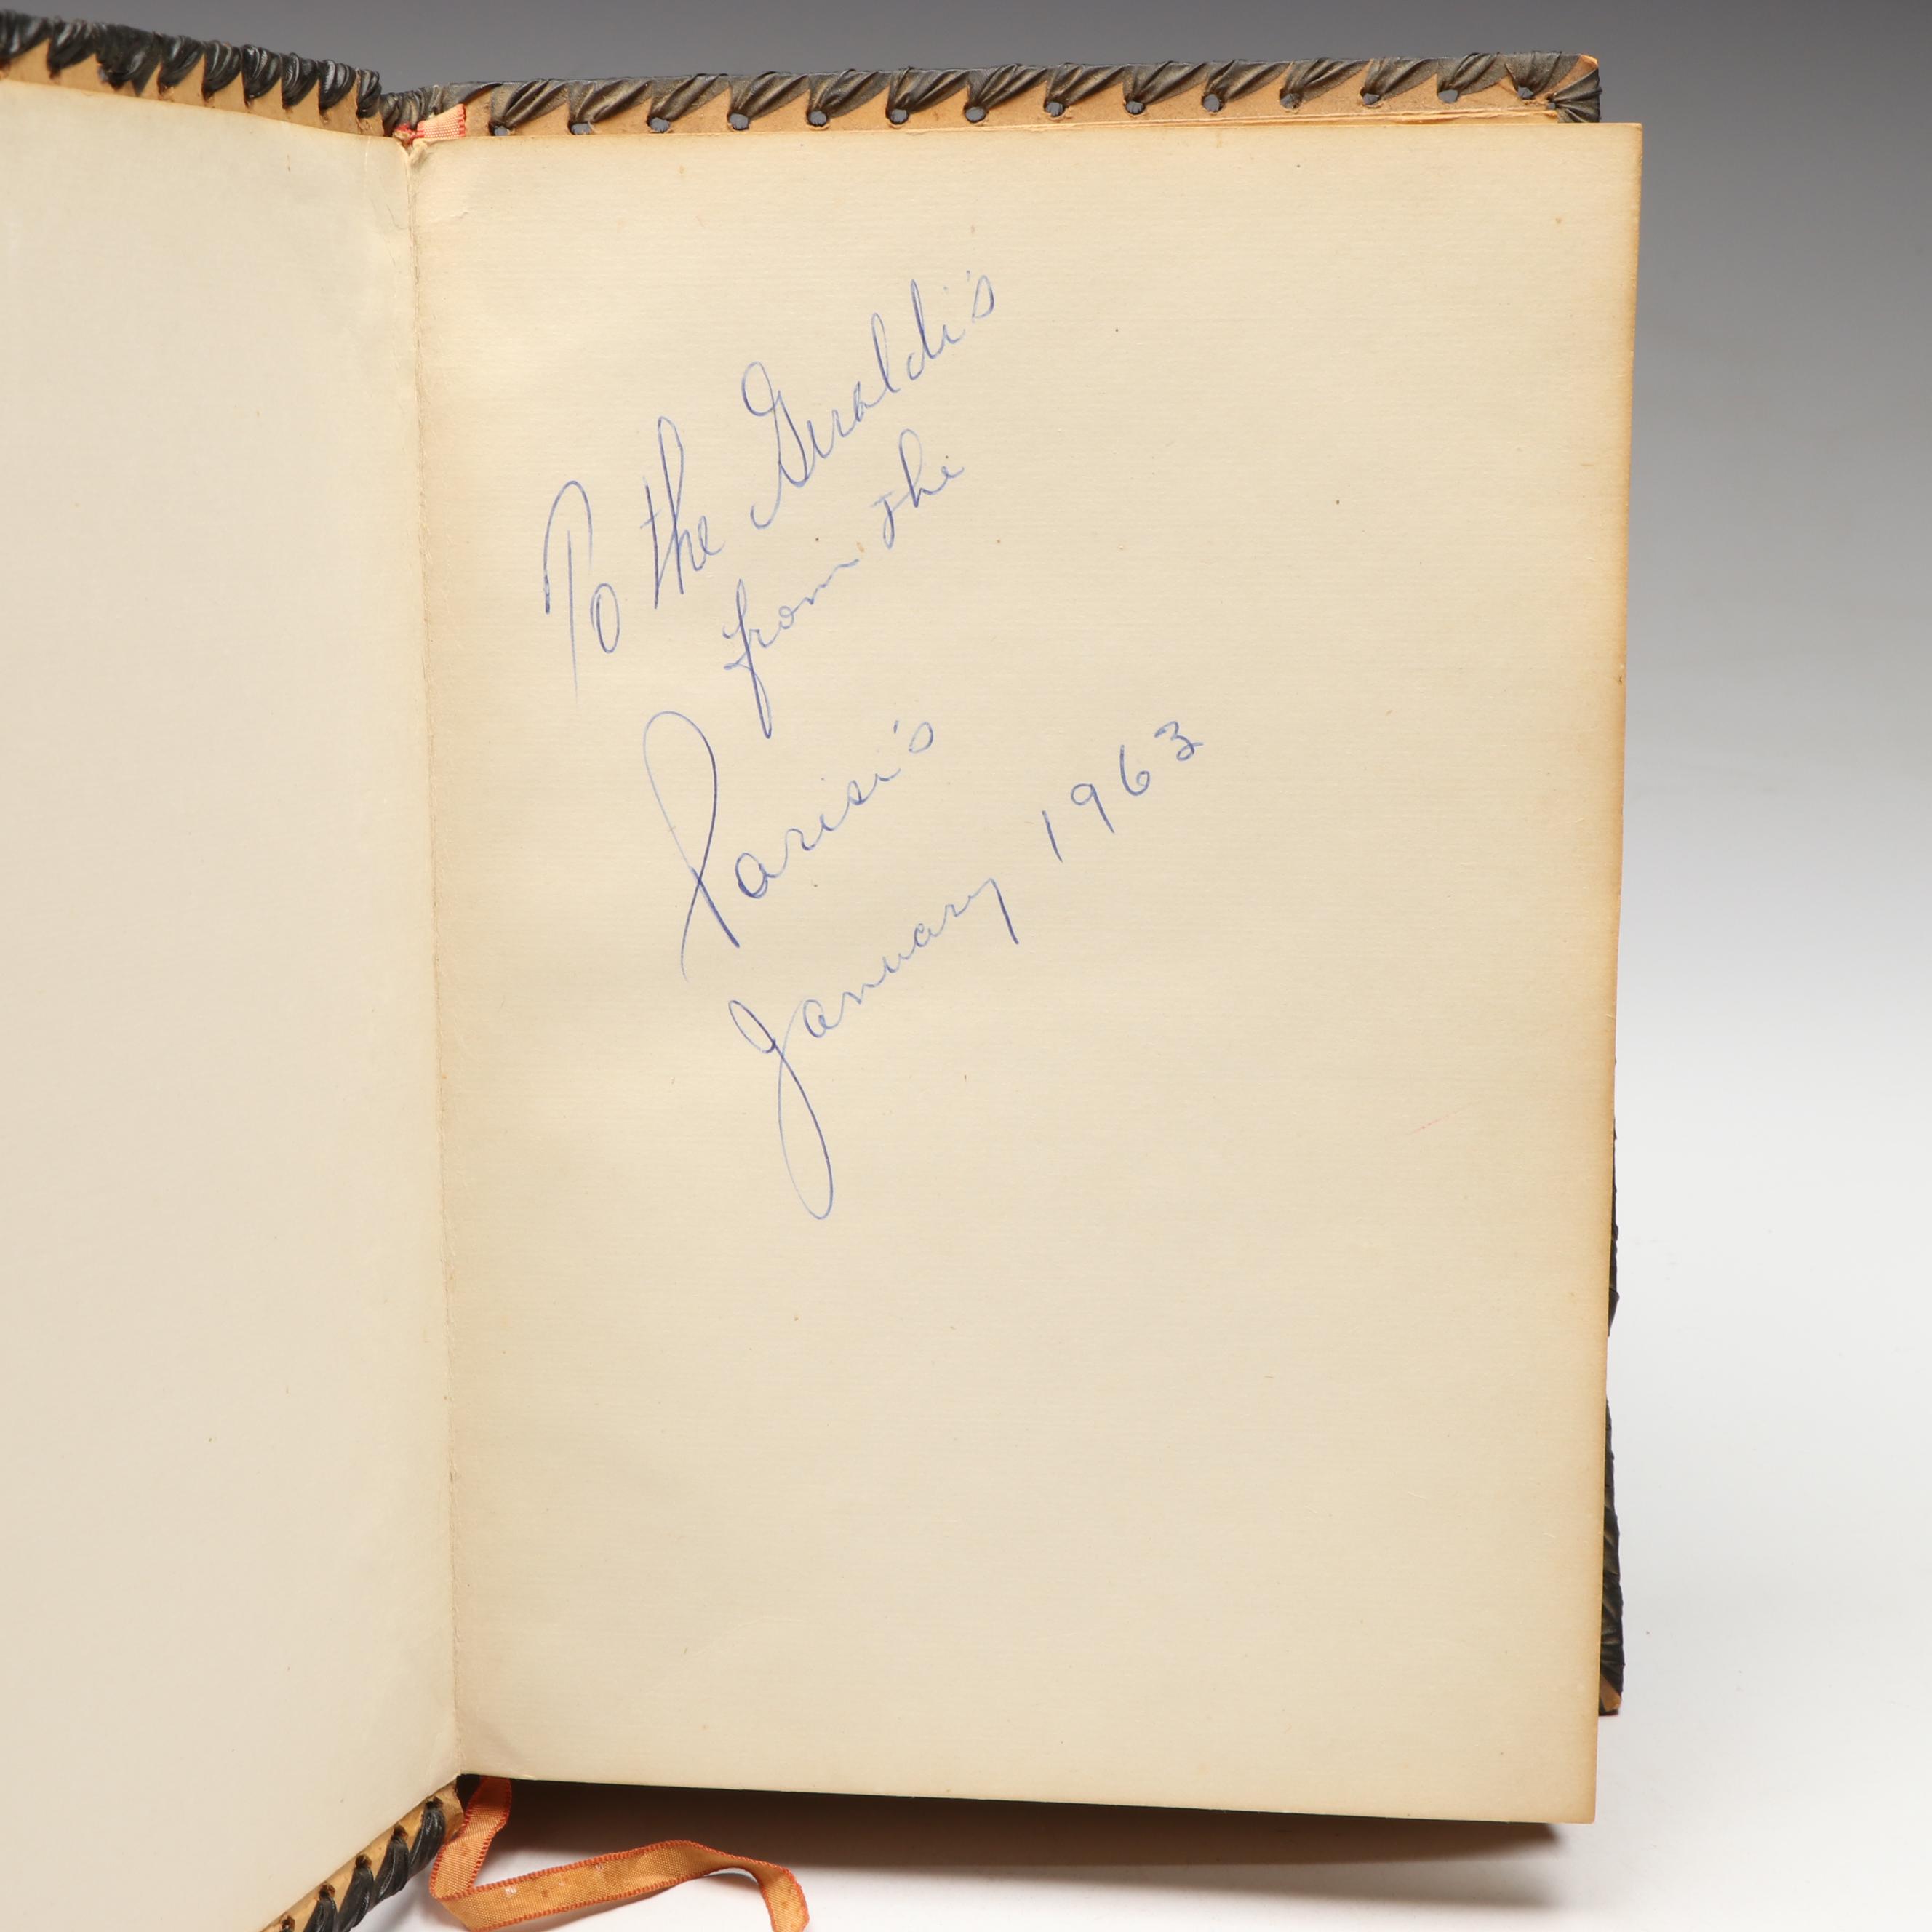 To the Geraldi's
from the
Parisi's
January 1963